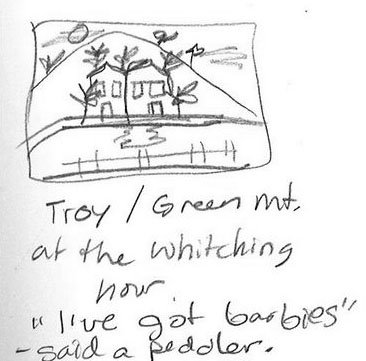 Troy / Green mt.
at the whitching
hour
"I've got barbies"
- said a peddler.